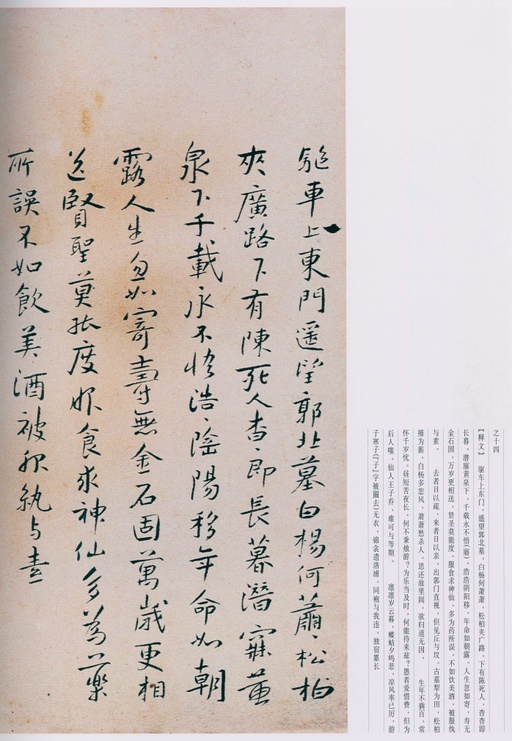 驅車上東門遥望郭北墓白楊何蕭〻松柏
夾廣路下有陳死人杳〻即長暮潛寐黄
泉下千載永不悟浩〻陰陽移年命如朝
露人生忽如寄壽無金石固萬歲更相
送賢聖莫能度服食求神仙多為藥
所誤不如飲美酒被服紈与素
之十四
【释文】 驱车上东门，遥望郭北墓。白杨何萧萧，松柏夹广路。下有陈死人，杳杳即
长暮。潜寐黄泉下，千载永不悟(寤)。浩浩阴阳移，年命如朝露。人生忽如寄，寿无
金石固。万岁更相送，贤圣莫能度。服食求神仙，多为药所误。不如饮美酒，被服纨
与素。 去者日以疏，来者日以亲。出郭门直视，但见丘与坟。古墓犁为田，松柏
摧为薪。白杨多悲风，萧萧愁杀人。思还故里闾，欲归道无因。 生年不满百，常
怀千岁忧。昼短苦夜长，何不秉烛游？为乐当及时，何能待来兹？愚者爱惜费，但为
后人嗤。仙人王子乔，难可与等期。 凛凛岁云暮，蝼蛄夕鸣悲。凉风率已厉，游
子寒子(「子」字被圈去)无衣。锦衾遗洛浦，同袍与我违。独宿累长